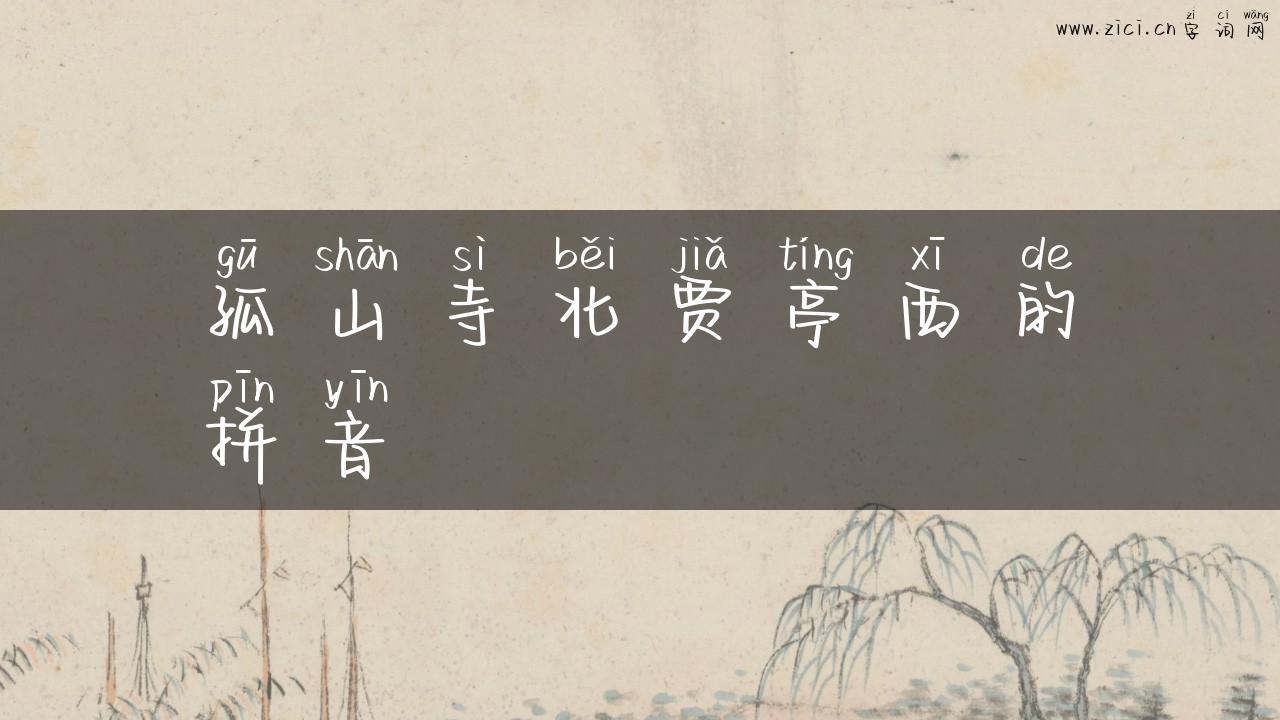 zì cí wǎng
www.zici.cn 字词网
gū shān sì běi jiǎ tíng xī de
孤山寺北贾亭西的
pīn yīn
拼音